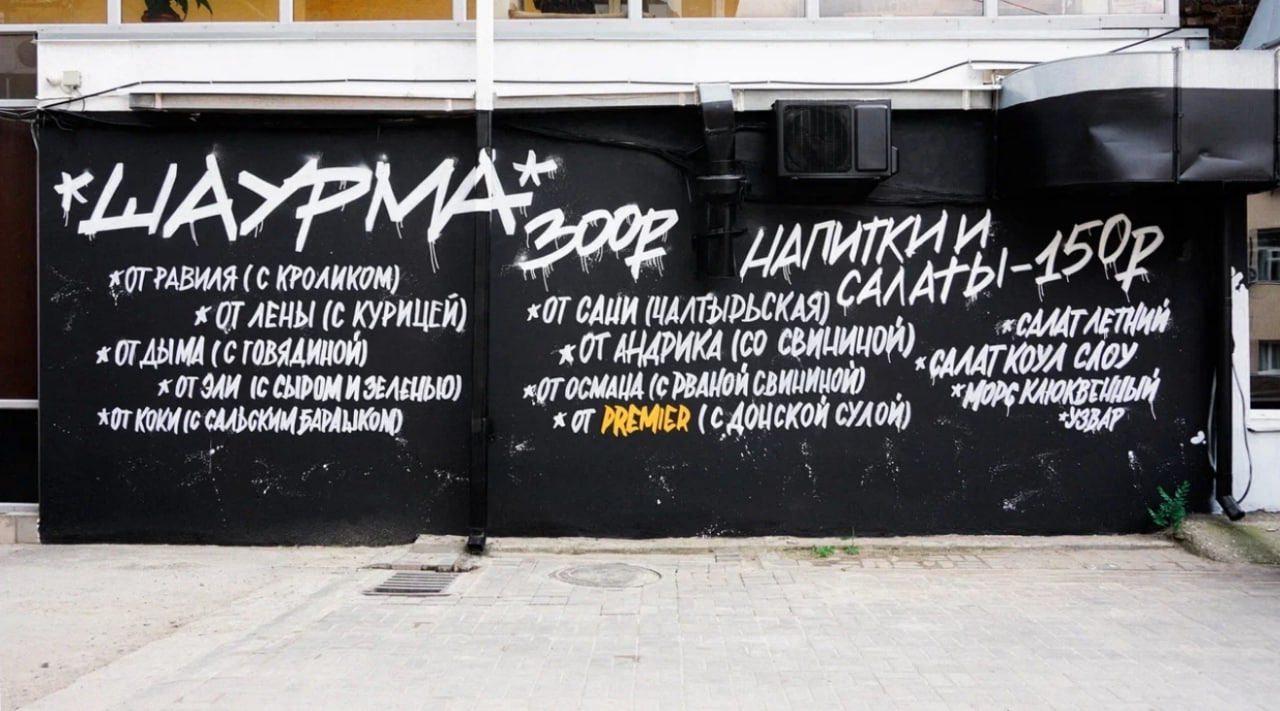 *ШАУРМА*
300₽
*ОТ РАВИЛЯ (С КРОЛИКОМ)
*ОТ ЛЕНЫ (С КУРИЦЕЙ)
*ОТ ДЫМА (С ГОВЯДИНОЙ)
*ОТ ЭЛИ (С СЫРОМ И ЗЕЛЕНЬЮ)
*ОТ КОКИ (С САЛЬСКИМ БАРАШКОМ)
*ОТ САНИ (ЧАЛТЫРЬСКАЯ)
*ОТ АНДРИКА (СО СВИНИНОЙ)
*ОТ ОСМАНА (С РВАНОЙ СВИНИНОЙ)
*ОТ PREMIER (С ДОНСКОЙ СУЛОЙ)
НАПИТКИ И
САЛАТЫ-150₽
*САЛАТ ЛЕТНИЙ
*САЛАТ КОУЛ СЛОУ
*МОРС КЛЮКВЕННЫЙ
*УЗВАР